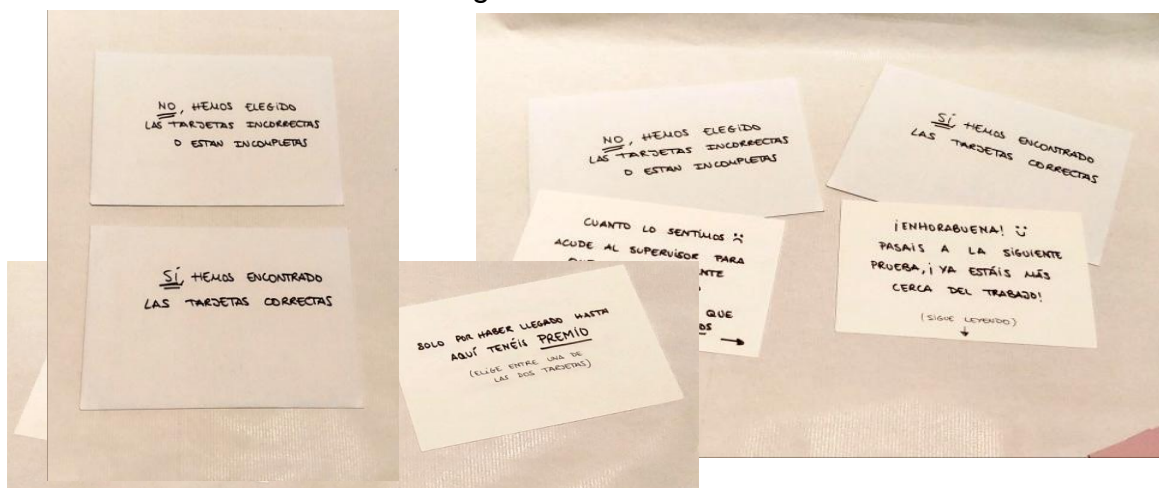 NO, HEMOS ELEGIDO
LAS TARJETAS INCORRECTAS
O ESTAN INCOMPLETAS
SÍ, HEMOS ENCONTRADO
LAS TARJETAS CORRECTAS
SOLO POR HABER LLEGADO HASTA
AQUÍ TENÉIS PREMIO
(ELIGE ENTRE UNA DE
LAS DOS TARJETAS)
NO, HEMOS ELEGIDO
LAS TARJETAS INCORRECTAS
O ESTAN INCOMPLETAS
CUANTO LO SENTIMOS :(
ACUDE AL SUPERVISOR PARA
NTE
QUE
OS →
SÍ, HEMOS ENCONTRADO
LAS TARJETAS CORRECTAS
¡ENHORABUENA! :)
PASAIS A LA SIGUIENTE
PRUEBA, ¡YA ESTÁIS MÁS
CERCA DEL TRABAJO!
(SIGUE LEYENDO)
↓